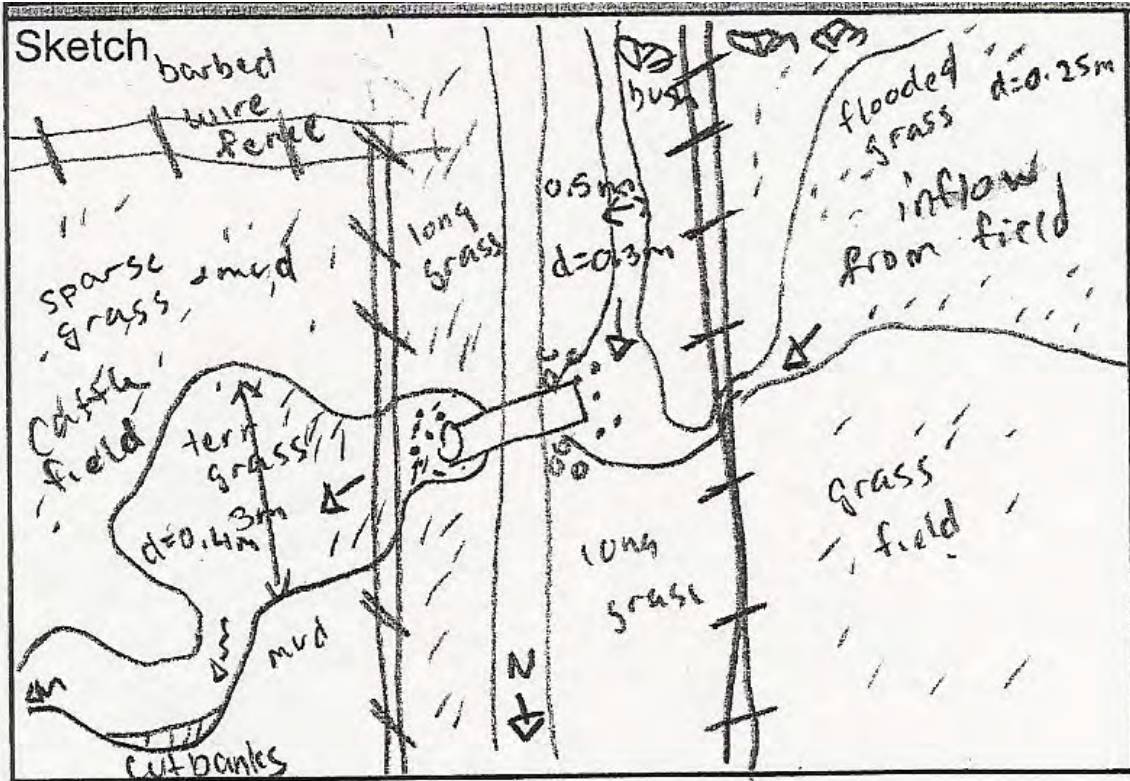 Sketch
barbed
wire
fence
sparse
grass + mud
Cattle
field
terr
grass
3m
d=0.4m
mud
cutbanks
long
grass
N
0.5m
d=0.3m
bush
long
grass
flooded
grass
d=0.25m
inflow
from field
grass
field